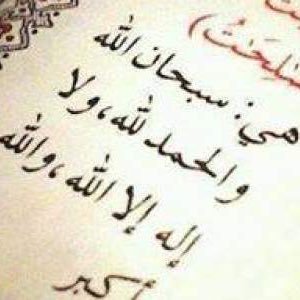 هي: سبحان الله
والحمد لله، ولا
إله إلا الله، والله
أكبر